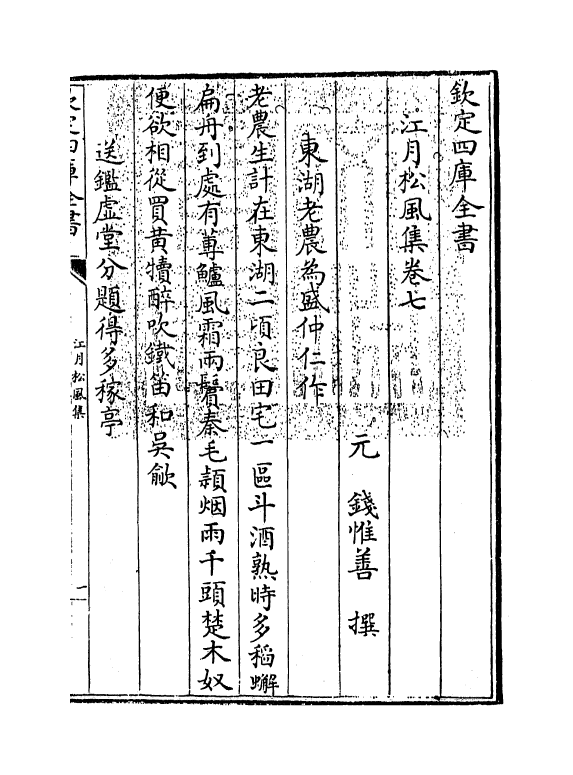 欽定四庫全書
江月松風集卷七
元　錢惟善　撰
東湖老農為盛仲仁作
老農生計在東湖二頃良田宅一區斗酒熟時多稻蠏
扁舟到處有蓴鱸風霜兩鬢秦毛頴烟雨千頭楚木奴
便欲相從買黄犢醉吹鐵笛和吳歈
送鑑虚堂分題得多稼亭
欽定四庫全書
江月松風集
一